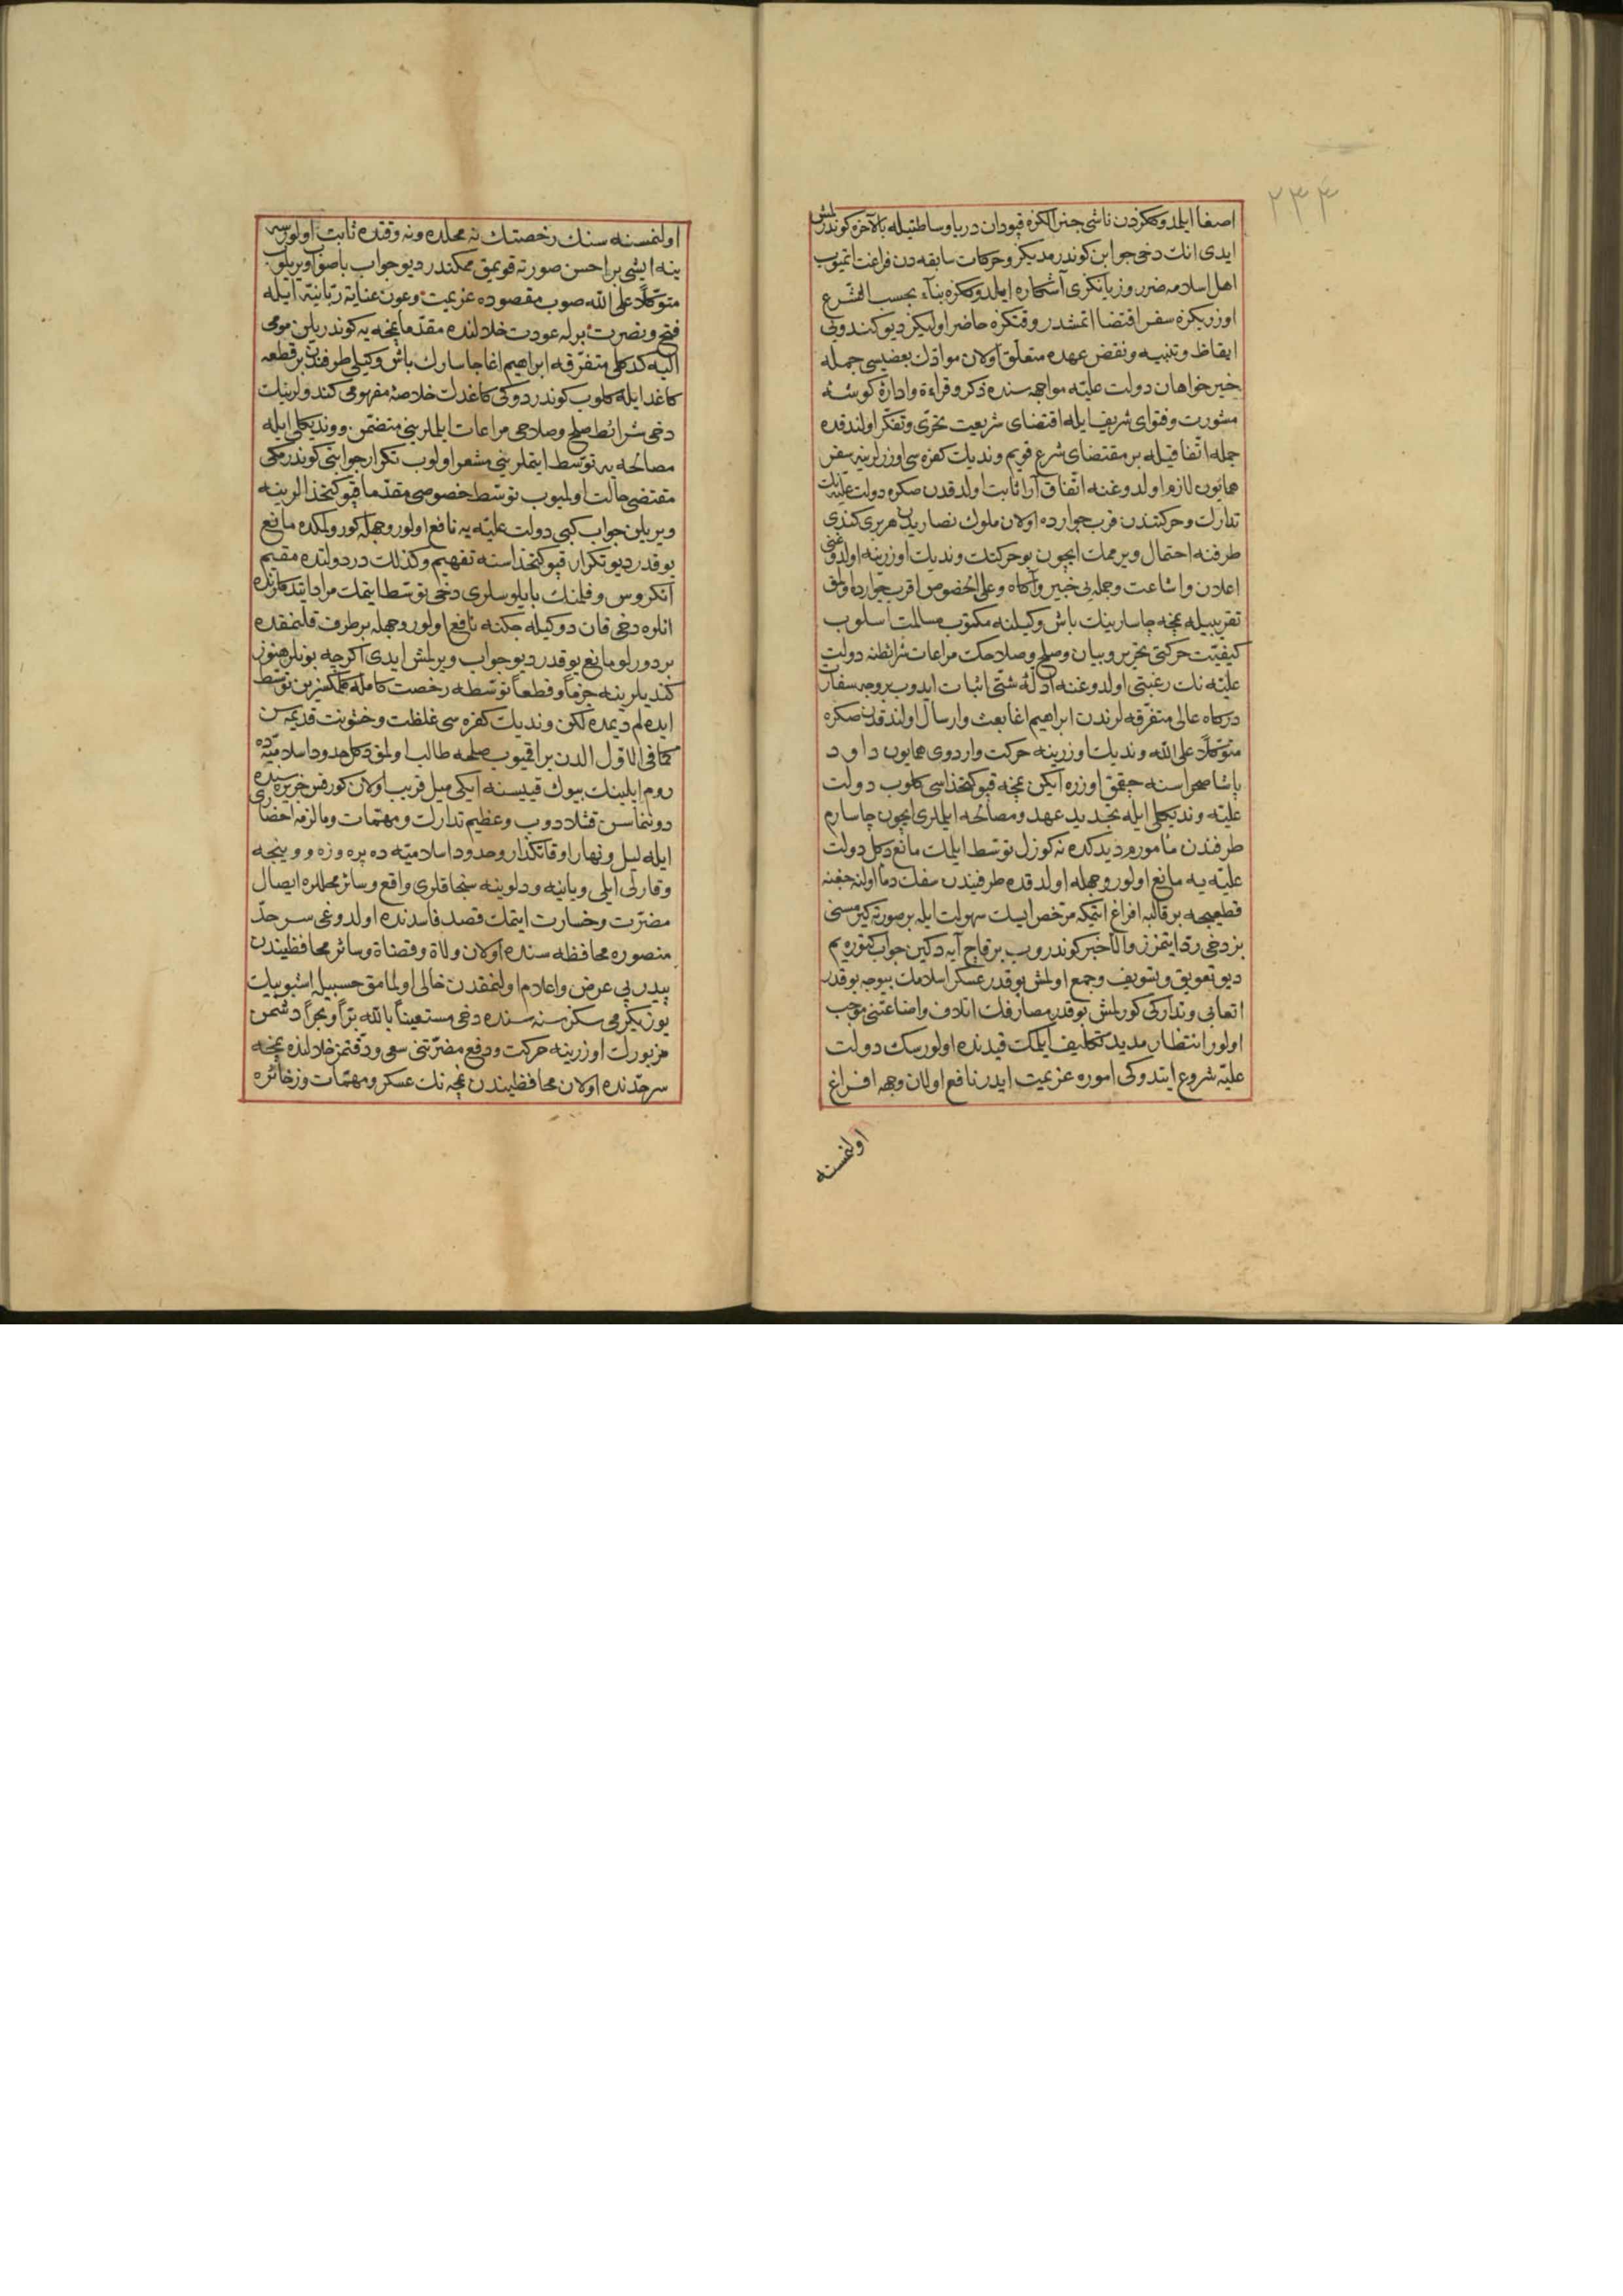 ٢٣٣
اصغا ایلدوکگزدن ناشی جنرالکزه قپودان دریا وساطتیله بالآخره کوندرلمش
ایدی انك دخی جوابن کوندرمدیکز وحرکات سابقه دن فراغت اتمیوب
اهل اسلامه ضرر وزیانکزی آشکاره ایلدوککزه بناء بحسب الشرع
اوزریکزه سفر اقتضا اتمشدر وقتکزه حاضر اولیکز دیو کندویی
ایقاظ وتنبیه ونقض عهده متعلق اولان موادك بعضیسی جمله
خیرخواهان دولت علیّه مواجهه سنده ذکر وقراءة وادارۀ کوشۀ
مشورت وفتوای شریف ایله اقتضای شریعت تحرّی وتفکّر اولندقده
جمله اتّفاقیله بر مقتضای شرع قویم وندیك کفره سی اوزرلرینه سفر
همایون لازم اولدوغنه اتّفاق آرا ثابت اولدقدن صکره دولت علیّه نك
تدارك وحرکتندن قرب جوارده اولان ملوك نصارینك هر بری کندی
طرفنه احتمال ویرممك ایچون بو حرکتك وندیك اوزرینه اولدوغنی
اعلان واشاعت وجمله یی خبیر وآکاه وعلی الخصوص اقرب جوارده اولمق
تقریبیله نمچه چاسارینك باش وکیلنه مکتوب مسالمت اسلوب
کیفیّت حرکتی تحریر وبیان وصلح وصلاحك مراعات شرائطنه دولت
علیّه نك رغبتی اولدوغنه ادلّۀ شتّی اثبات ایدوب بر وجه سفارت
درکاه عالی متفرّقه لرندن ابراهیم اغا بعث وارسال اولندقدن صکره
متوکّلاً علی الله وندیك اوزرینه حرکت واردوی همایون داود
پاشا صحراسنه چقمق اوزره ایکن نمچه قپوکتخداسی کلوب دولت
علیّه وندیکلی ایله تجدید عهد ومصالحه ایلملری ایچون چاسارم
طرفندن مأمورم دیدکده نه کوزل توسّط ایلمك مانع دکل دولت
علیّه یه مانع اولور وجهله اولدقده طرفیندن سفك دما اولنه جغنه
قطعیجه بر قالبه افراغ ایتمکه مرخّص ایسك سهولت ایله بر صورته کیرمسنی
بز دخی ردّ ایتمزز والا خبر کوندروب بر قاچ آیه دکین جواب کتوره یم
دیو تعویق وتسویف وجمع اولمش بو قدر عسکر اسلامك بیوجه بو قدر
اتعابی وتدارکی کورلمش بو قدر مصارفك اتلاف واضاعتنی موجب
اولور انتظار مدید تکلیف ایلمك قیدنده اولورسك دولت
علیّه شروع ایتدوکی اموره عزیمت ایدر نافع اولان وجهه افراغ
اولنمسنه
اولنمسنه سنك رخصتك نه محلده ونه وقتده ثابت اولورسه
ینه ایشی بر احسن صورته قویمق ممکندر دیو جواب باصواب ویریلوب
متوکّلاً علی الله صوب مقصوده عزیمت وعون عنایة ربّانیّه ایله
فتح ونصرت برله عودت خلالنده مقدّما نمچه یه کوندریلن مومی
الیه کدکلی متفرّقه ابراهیم اغا چاسارك باش وکیلی طرفندن بر قطعه
کاغد ایله کلوب کوندردوکی کاغدك خلاصۀ مفهومی کندولرینك
دخی شرائط صلح وصلاحی مراعات ایلملرینی متضمّن ووندیکلی ایله
مصالحه یه توسّط ایتملرینی مشعر اولوب تکرار جوابنی کوندرمکی
مقتضی حالت اولمیوب توسّط خصوصی مقدّما قپوکتخدالرینه
ویریلن جواب کبی دولت علیّه یه نافع اولور وجهله کورولمکده مانع
یوقدر دیو تکرار قپوکتخداسنه تفهیم وکذلك در دولتده مقیم
آنکروس وفلمنك بایلوسلری دخی توسّط ایتمك مراد ایتدکلرنده
انلره دخی قان دوکیله جکنه نافع اولور وجهله بر طرف قلنمقده
بر دورلو مانع یوقدر دیو جواب ویرلمش ایدی اکرچه بونلر هنوز
کندیلرینه جزماً وقطعاً توسّطه رخصت کامله کلمکسزین توسّط
ایده لم دیمده لکن وندیك کفره سی غلظت وخشونت قدیمه سن
کما فی الاوّل الدن براقمیوب صلحه طالب اولمق دکل حدود اسلامیّه ده
روم ایلینك بیوك قییسنه ایکی میل قریب اولان کورفس جزیره سنده
دوننماسن قشلادوب وعظیم تدارك ومهمّات ومالزمه احضاری
ایله لیل ونهار اوقاتکذار وحدود اسلامیّه ده پره وزه وونیجه
وقارلی ایلی ویانیه ودلوینه سنجاقلری واقع وسائر محللره ایصال
مضرّت وخسارت ایتمك قصد فاسدنده اولدوغی سرحدّ
منصوره محافظه سنده اولان ولاة وقضاة وسائر محافظیندن
پیدرپی عرض واعلام اولنمقدن خالی اولمامق حسبیله اشبو بیك
یوز یکرمی سکز سنه سنده دخی مستعیناً بالله برّاً وبحراً دشمن
مزبورك اوزرینه حرکت ودفع مضرّتنی سعی ودقّتمز خلالنده نمچه
سرحدّنده اولان محافظیندن نمچه نك عسکر ومهمّات وذخائره